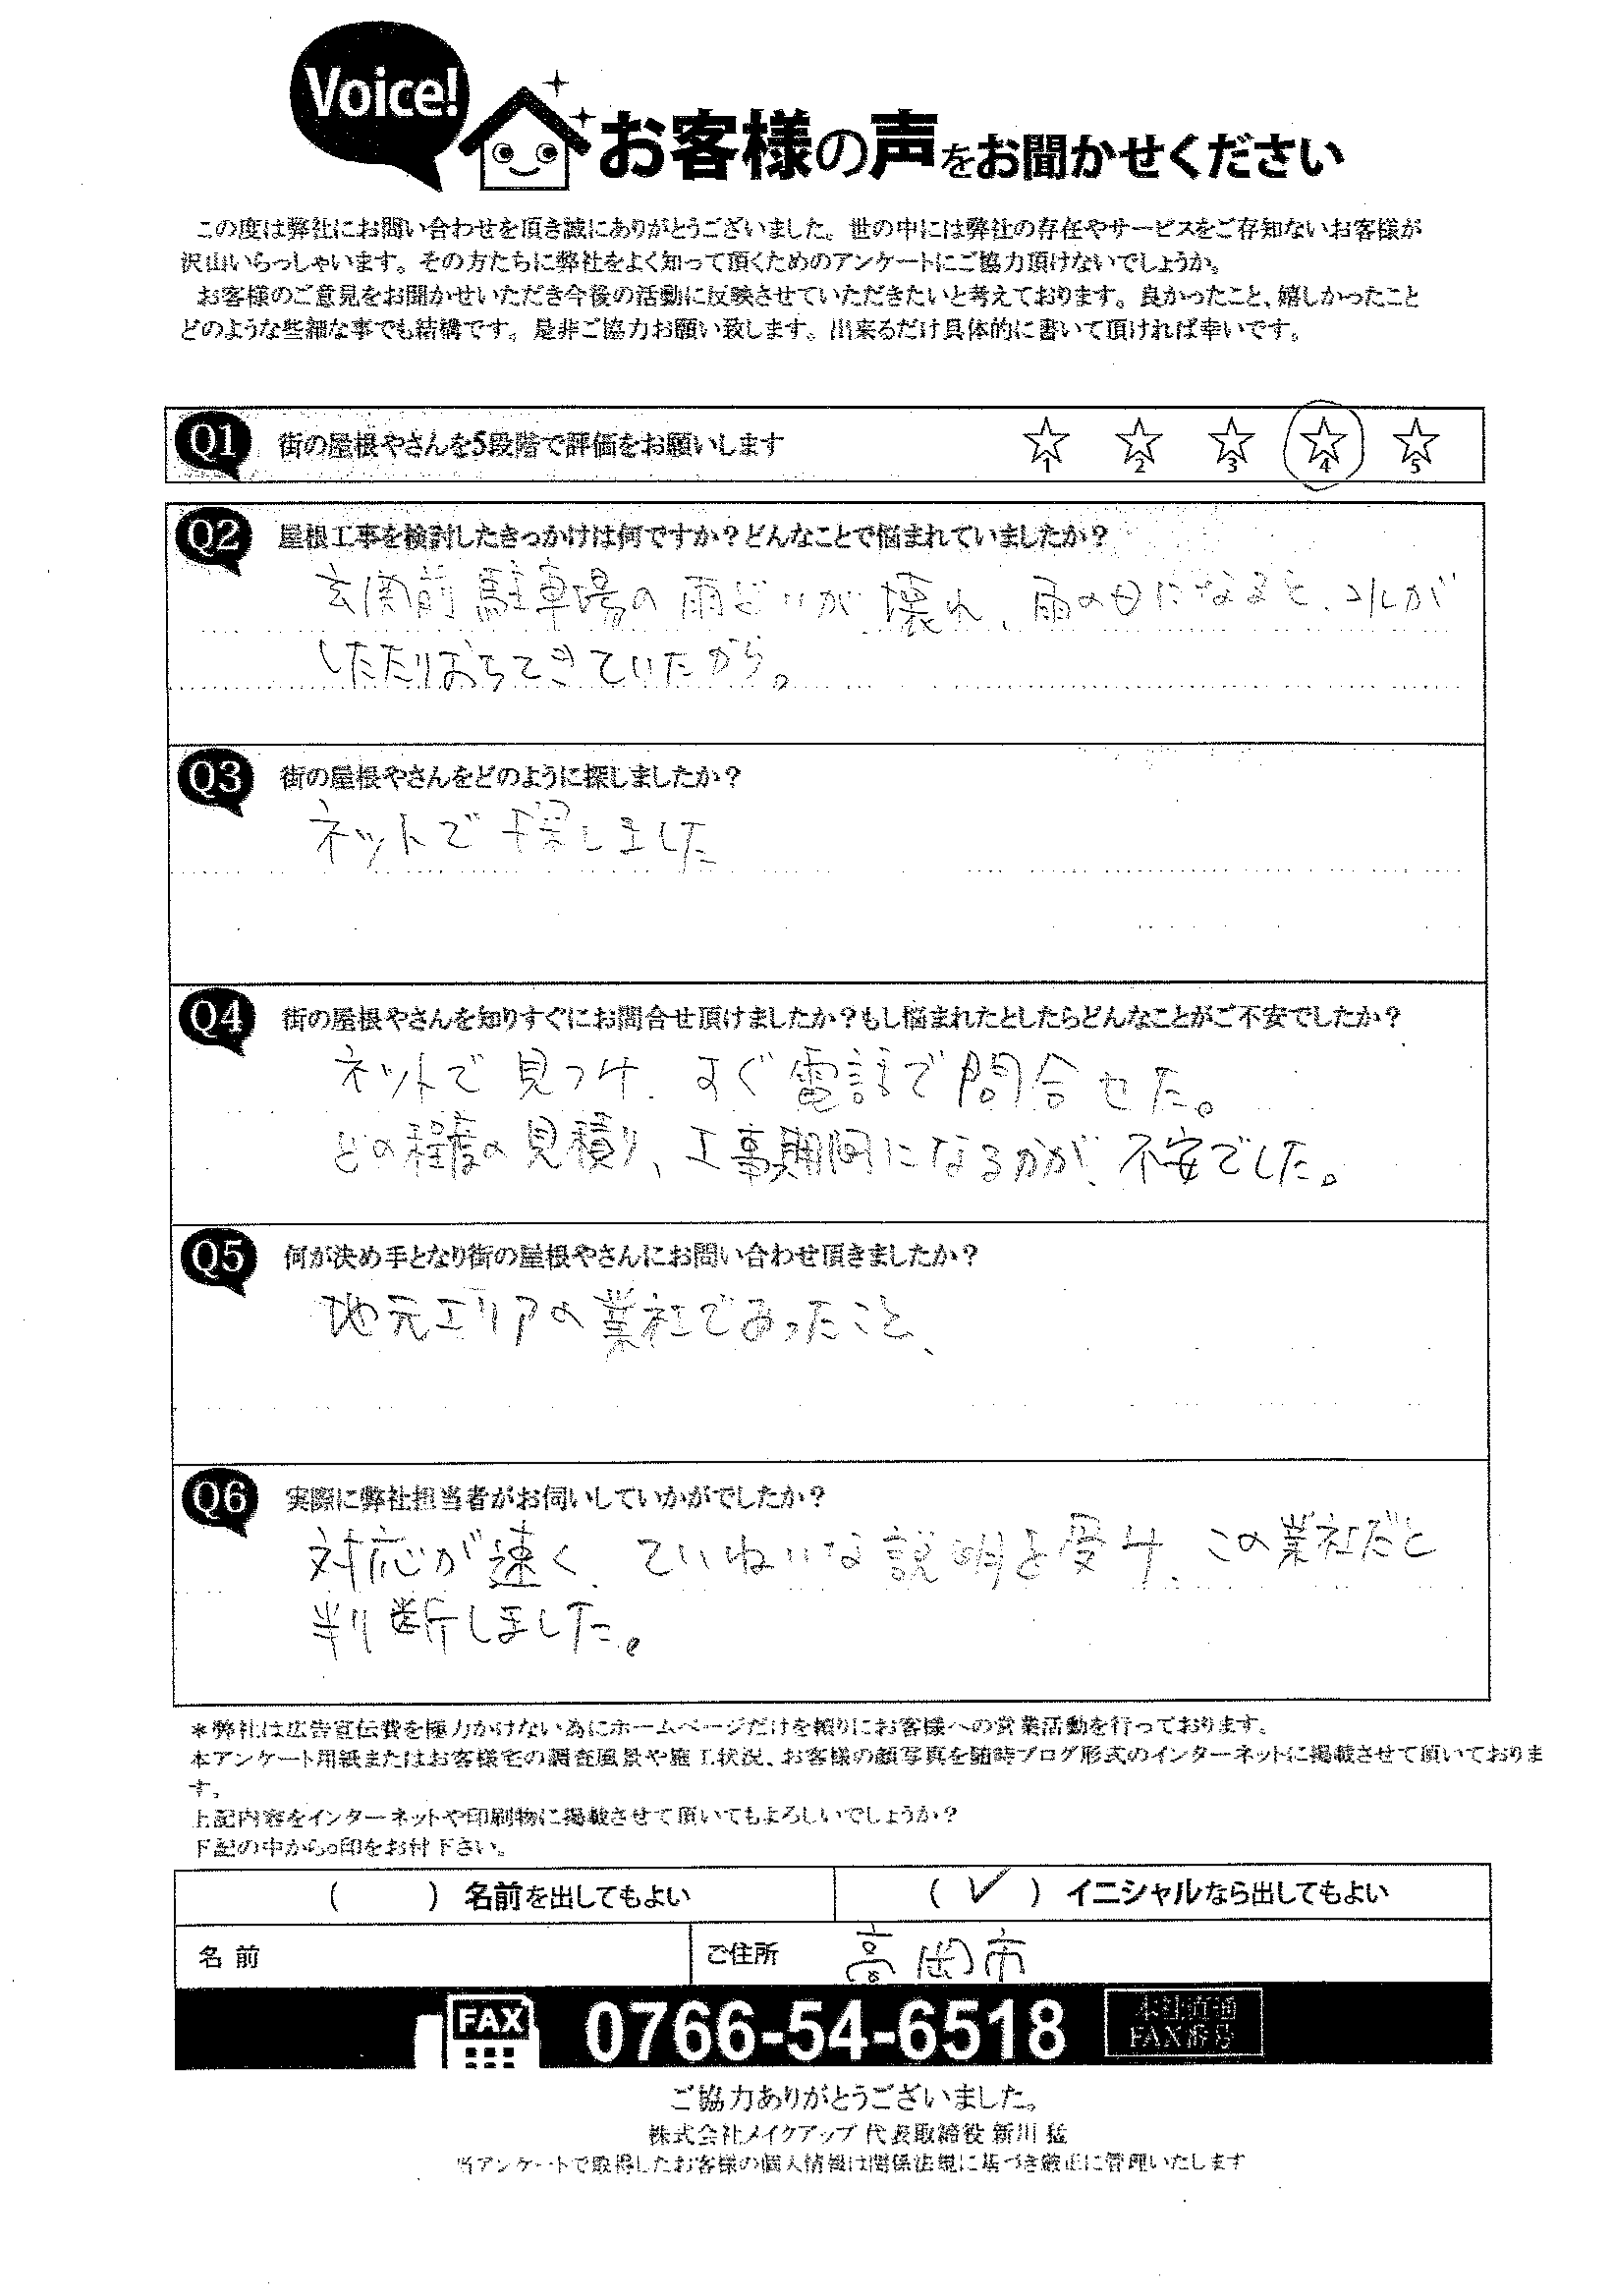 Voice!
お客様の声をお聞かせください
この度は弊社にお問い合わせを頂き誠にありがとうございました。世の中には弊社の存在やサービスをご存知ないお客様が
沢山いらっしゃいます。その方たちに弊社をよく知って頂くためのアンケートにご協力頂けないでしょうか。
お客様のご意見をお聞かせいただき今後の活動に反映させていただきたいと考えております。良かったこと、嬉しかったこと
どのような些細な事でも結構です。是非ご協力お願い致します。出来るだけ具体的に書いて頂ければ幸いです。
Q1 街の屋根やさんを5段階で評価をお願いします ☆1 ☆2 ☆3 ☆4 ☆5
Q2 屋根工事を検討したきっかけは何ですか?どんなことで悩まれていましたか?
玄関前駐車場の雨どいが壊れ、雨の日になると、水が
したたりおちてきていたから。
Q3 街の屋根やさんをどのように探しましたか?
ネットで探しました
Q4 街の屋根やさんを知りすぐにお問合せ頂けましたか?もし悩まれたとしたらどんなことがご不安でしたか?
ネットで見つけ、すぐ電話で問合せた。
どの程度の見積り、工事期間になるかが、不安でした。
Q5 何が決め手となり街の屋根やさんにお問い合わせ頂きましたか?
地元エリアの業社であったこと、
Q6 実際に弊社担当者がお伺いしていかがでしたか?
対応が速く、ていねいな説明を受け、この業社だと
判断しました。
*弊社は広告宣伝費を極力かけない為にホームページだけを頼りにお客様への営業活動を行っております。
本アンケート用紙またはお客様宅の調査風景や施工状況、お客様の顔写真を随時ブログ形式のインターネットに掲載させて頂いておりま
す。
上記内容をインターネットや印刷物に掲載させて頂いてもよろしいでしょうか?
下記の中から○印をお付下さい。
( ) 名前を出してもよい (✓) イニシャルなら出してもよい
名前 ご住所 高岡市
FAX 0766-54-6518 本社直通
FAX番号
ご協力ありがとうございました。
株式会社メイクアップ 代表取締役 新川 猛
当アンケートで取得したお客様の個人情報は関係法規に基づき厳正に管理いたします